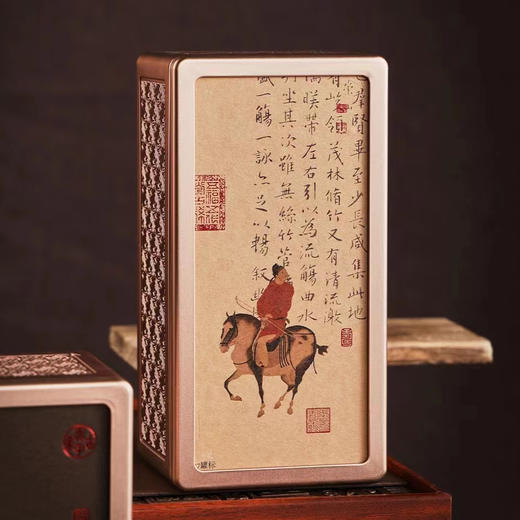 也羣賢畢至少長咸集此地
有峻領茂林脩竹又有清流激
湍暎帶左右引以為流觴曲水
列坐其次雖無絲竹管
盛一觴一詠亦足以暢敘幽
罐标